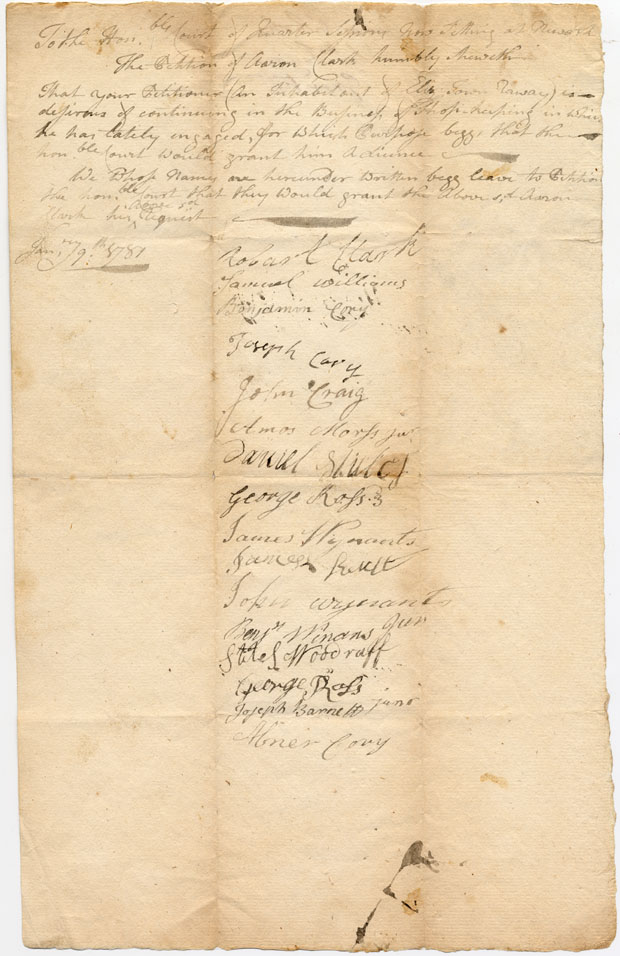 To the Hon.ble Court of Quarter Sessions now Sitting at Newark
The Petition of Aaron Clark humbly Sheweth
That your Petitioner (An Inhabitant of Eliz Town Raway) is
desirous of continuing in the Business of Shop-keeping in which
he has lately engaged, for which Purpose beggs that the
hon.ble Court would grant him a Licence
We Whose Names are hereunder Written begg leave to Petition
the hon.ble Court that they Would grant the Above s.d Aaron
Clark his Above s.d Request
Jan.ry 9.th 1781
Robart Clark
Samuel Williams
Benjamin Cory
Joseph Cory
John Craig
Amos Morss jur
Daniel
George Ross 3
James Wynants
James
John wynants
Benj.n Winans Jur
Woodruff
George Ross
Joseph Barnett junr
Abner Cory